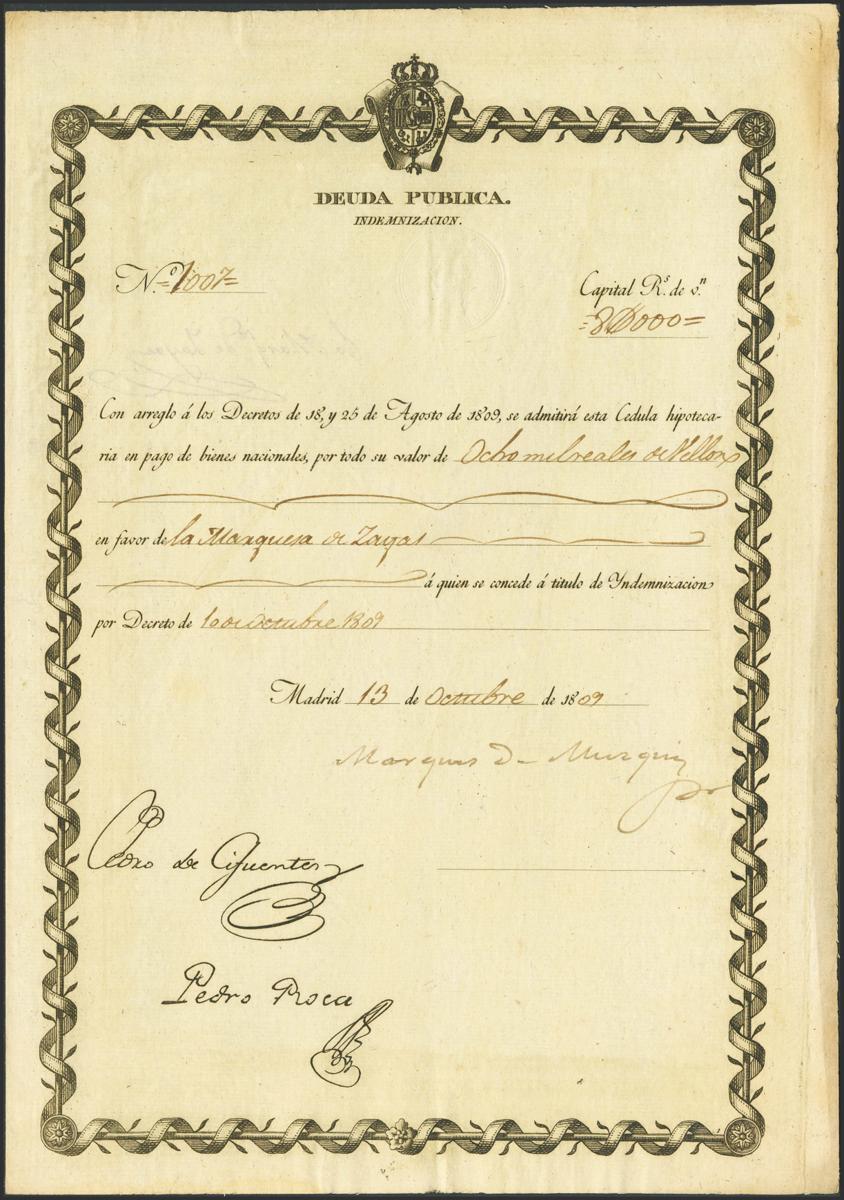 DEUDA PUBLICA.
INDEMNIZACION.
N.º =1007=
Capital R.s de v.n
=8D000=
Con arreglo á los Decretos de 18, y 25 de Agosto de 1809, se admitirá esta Cedula hipoteca-
ria en pago de bienes nacionales, por todo su valor de Ocho mil reales de Vellon
en favor de la Marquesa de Zayas
á quien se concede á titulo de Yndemnizacion
por Decreto de de Octubre 1809
Madrid 13 de Octubre de 1809
Marques D
Pedro de Cifuentes
Pedro Roca